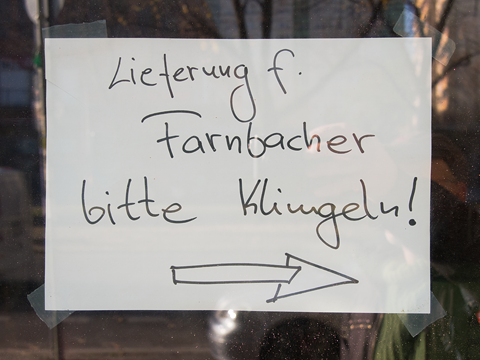 Lieferung f.
Farnbacher
bitte Klingeln!